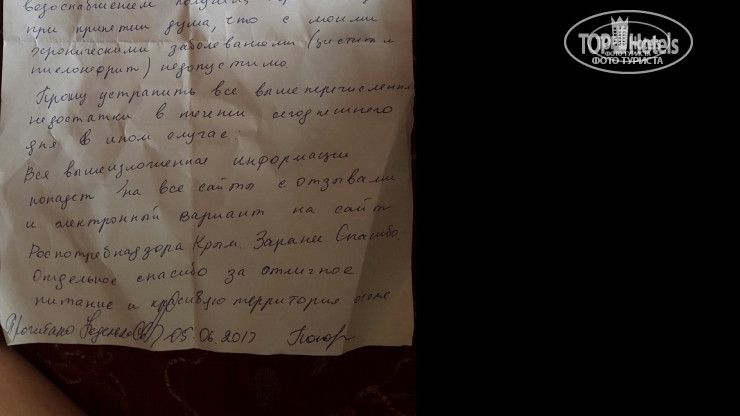 при принятии душа, что с моими
хроническими заболеваниями (цистит и
пиелонефрит) недопустимо.
Прошу устранить все выше перечисленные
недостатки в течении сегодняшнего
дня в ином случае:
Вся вышеизложенная информация
попадет на все сайты с отзывами
и электронный вариант на сайт
Роспотребнадзора Крым. Заранее Спасибо.
Отдельное спасибо за отличное
питание и красивую территория
05.06.2017
TOP Hotels
ФОТО ТУРИСТА
ФОТО ТУРИСТА